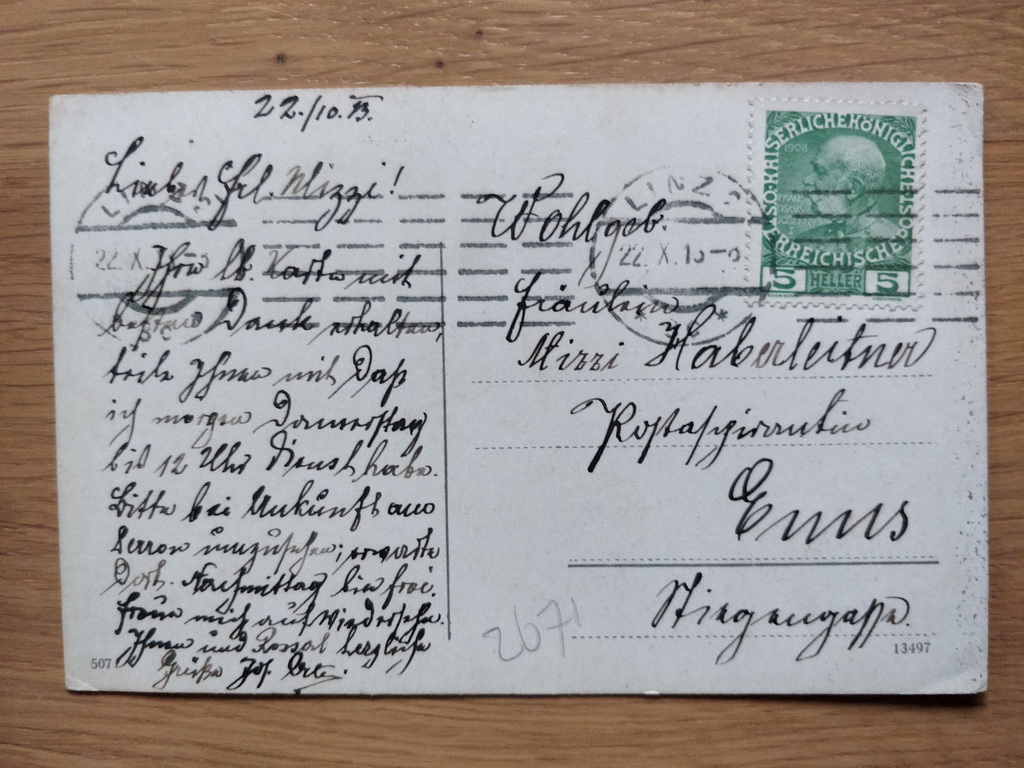 22./10.13.
Liebes Frl. Mizzi!
Ihre lb. Karte mit
bestem Dank erhalten,
teile Ihnen mit Daß
ich morgen Donnerstag
bis 12 Uhr Dienst habe.
Bitte bei Ankunft am
Perron umzusehen; erwarte
Dort. Nachmittag bin frei.
Freue mich auf Wiedersehn.
Ihnen und herzliche
Grüße Jos.
507
Wohlgeb.
Fräulein
Mizzi Haberleitner
Postaspirantin
Enns
Stiegengasse.
2671
13497
LINZ
22. X. 13
LINZ
22. X. 13-6
KAISERLICHEKÖNIGLICHE
ÖSTERREICHISCHE POST
1908
5 HELLER 5